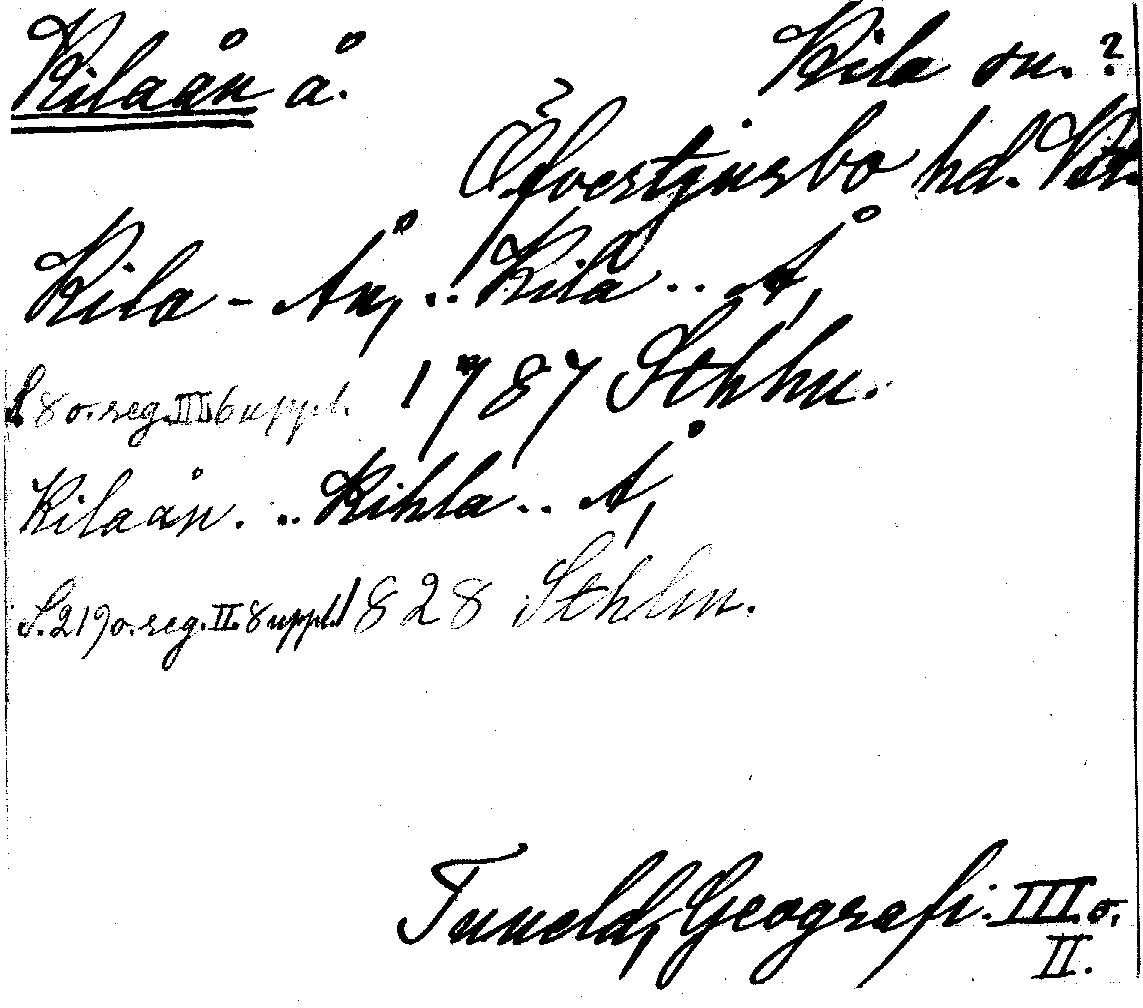 Kilaån å. Kila sn. ?
Öfvertjurbo hd. Vstm.
Kila-Ån, .. Kila .. Å,
S 8 o. reg. III 6 uppl. 1787 Sthlm.
Kilaån. .. Kihla .. Å,
S. 219 o. reg. II. 8 uppl. 1828 Sthlm.
Tuneld, Geografi. III. o.
II.